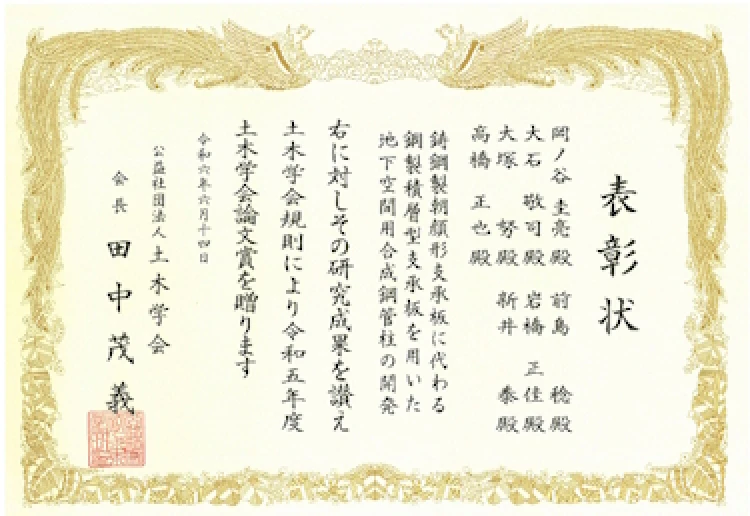 表彰状
岡ノ谷 圭亮殿 前島 稔殿
大石 敬司殿 岩橋 正佳殿
大塚 努殿 新井 泰殿
高橋 正也殿
鋳鋼製朝顔形支承板に代わる
鋼製積層型支承板を用いた
地下空間用合成鋼管柱の開発
右に対しその研究成果を讃え
土木学会規則により令和五年度
土木学会論文賞を贈ります
令和六年六月十四日
公益社団法人 土木学会
会長 田中茂義